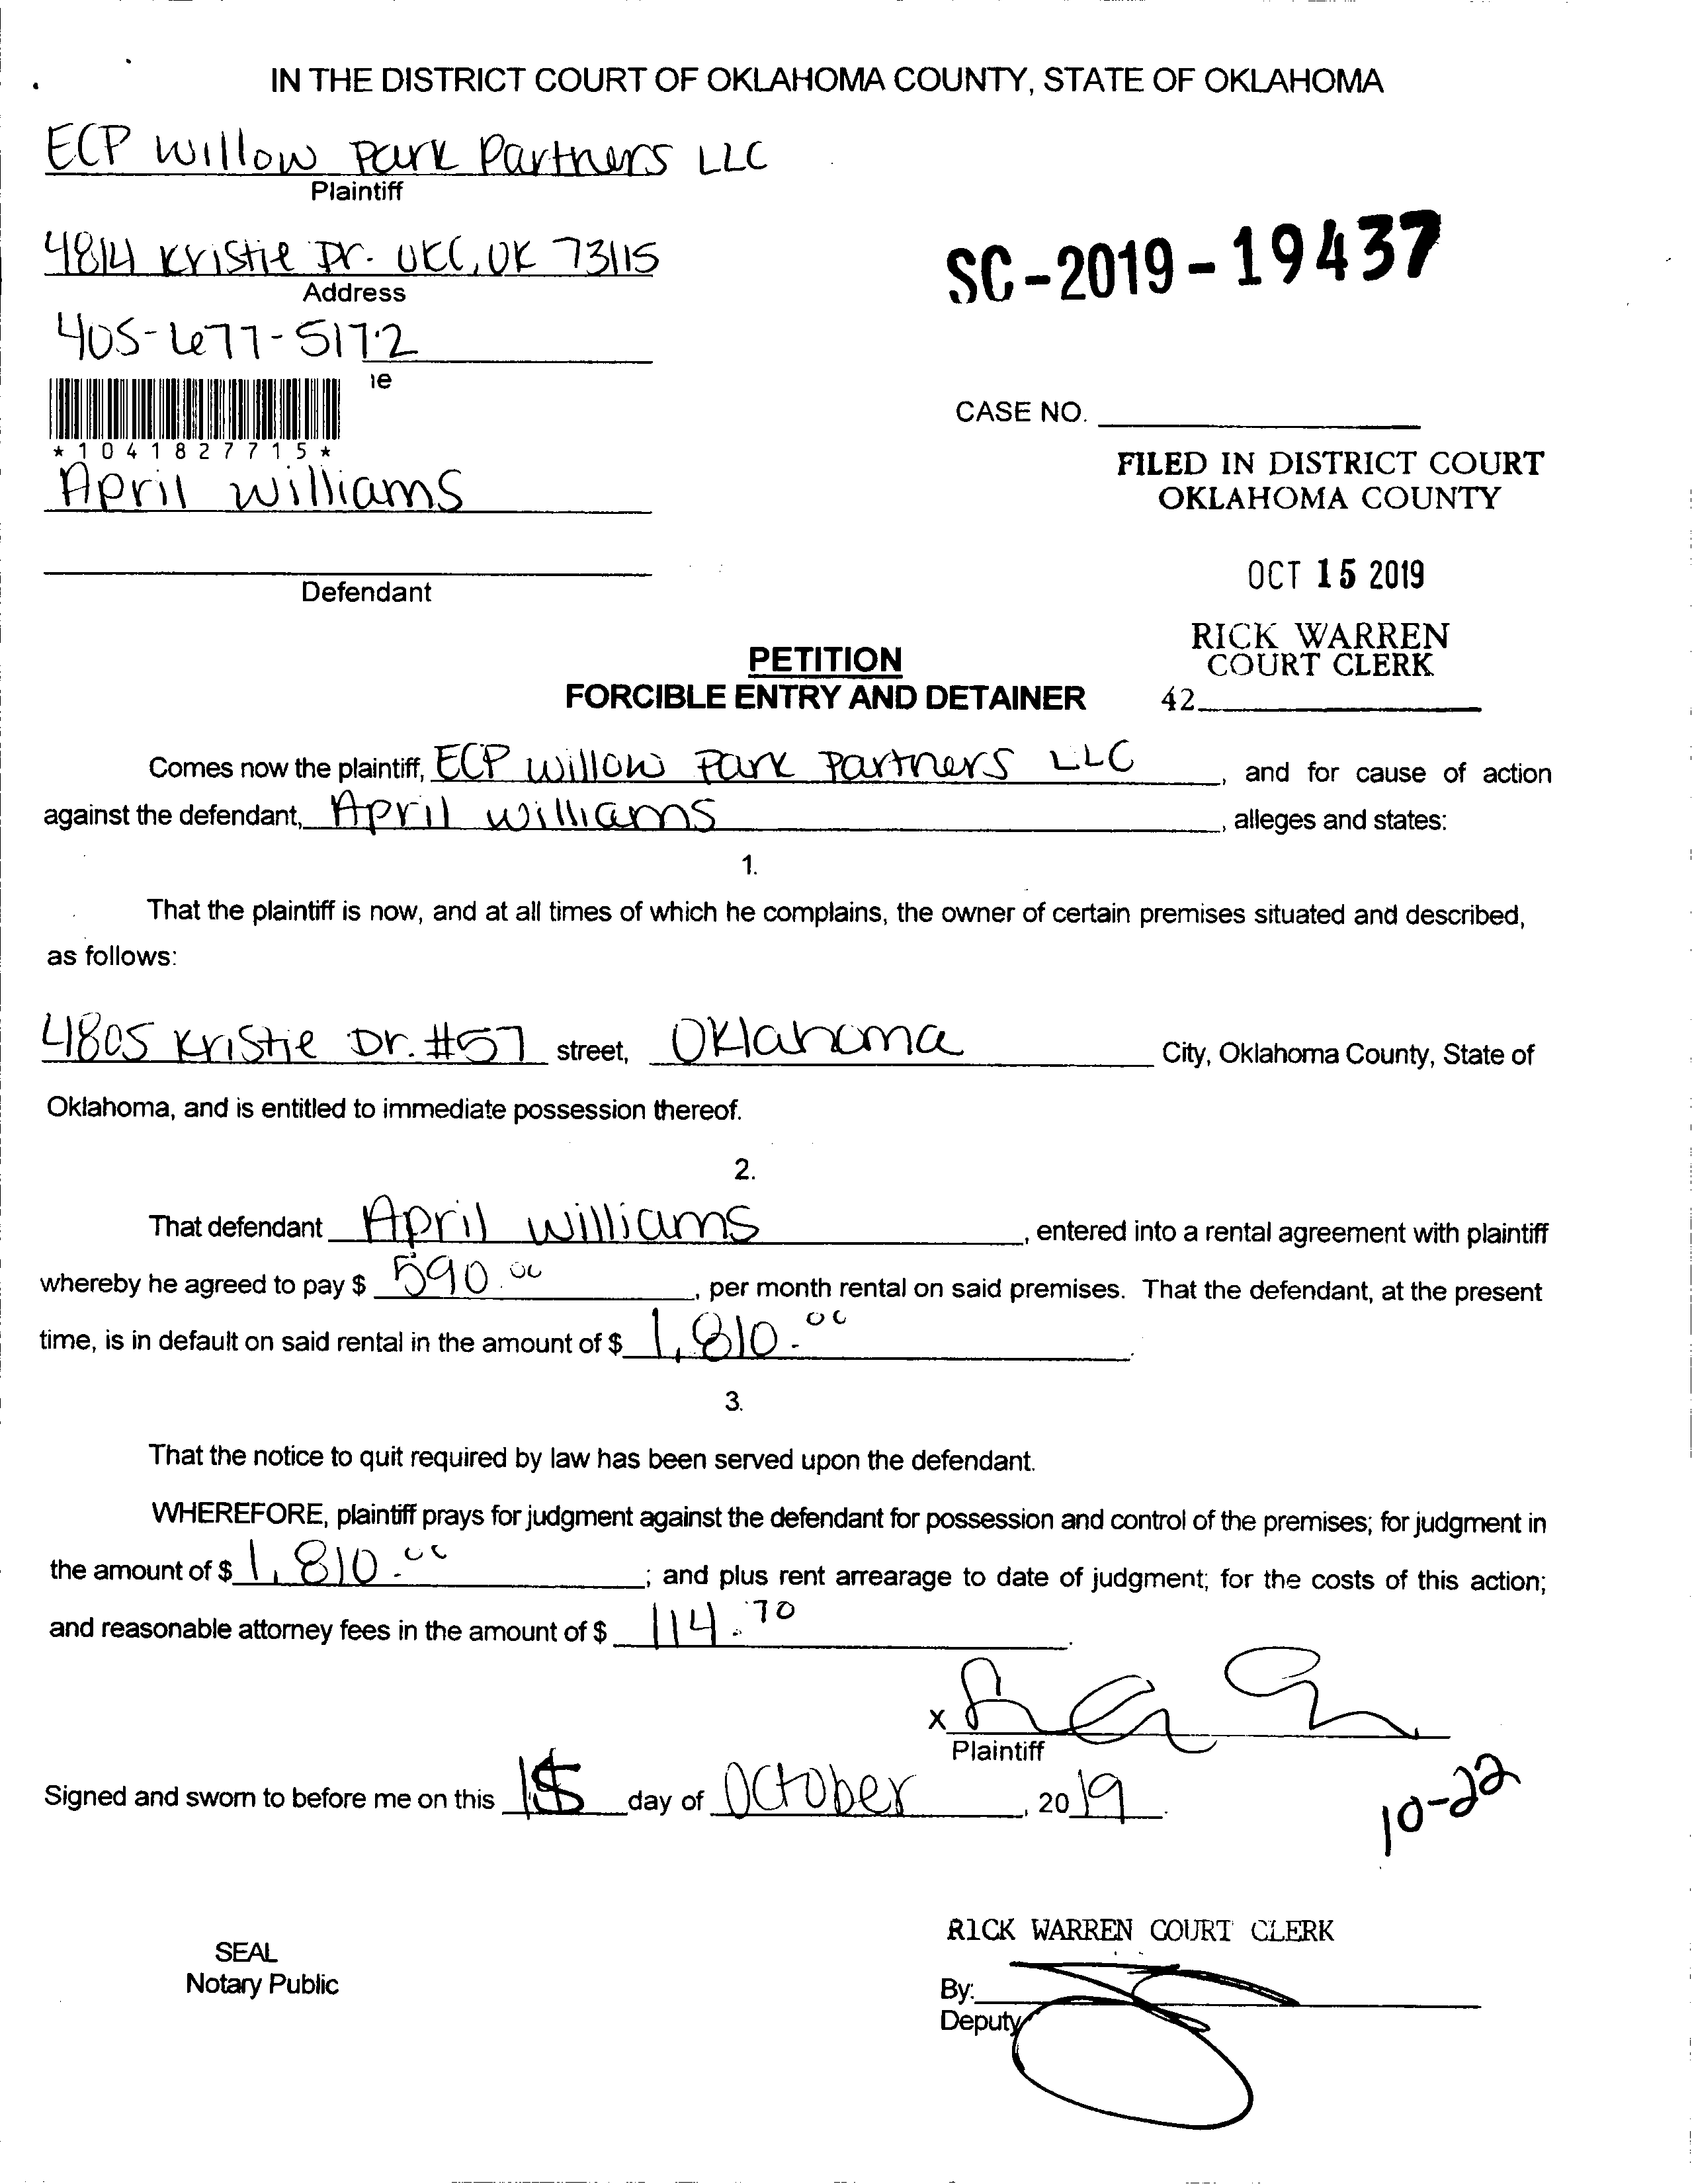 IN THE DISTRICT COURT OF OKLAHOMA COUNTY, STATE OF OKLAHOMA
ECP Willow Park Partners LLC
Plaintiff
4814 Kristie Dr. OKC, OK 73115
Address
SC-2019-19437
405-677-5172
ie
CASE NO.
*1041827715*
April Williams
FILED IN DISTRICT COURT
OKLAHOMA COUNTY
OCT 15 2019
Defendant
RICK WARREN
COURT CLERK
42
PETITION
FORCIBLE ENTRY AND DETAINER
Comes now the plaintiff, ECP Willow Park Partners LLC, and for cause of action
against the defendant, April Williams, alleges and states:
1.
That the plaintiff is now, and at all times of which he complains, the owner of certain premises situated and described,
as follows:
4805 Kristie Dr. #57 street, Oklahoma City, Oklahoma County, State of
Oklahoma, and is entitled to immediate possession thereof.
2.
That defendant April Williams, entered into a rental agreement with plaintiff
whereby he agreed to pay $ 590.00, per month rental on said premises. That the defendant, at the present
time, is in default on said rental in the amount of $ 1,810.00.
3.
That the notice to quit required by law has been served upon the defendant.
WHEREFORE, plaintiff prays for judgment against the defendant for possession and control of the premises; for judgment in
the amount of $ 1,810.00; and plus rent arrearage to date of judgment; for the costs of this action;
and reasonable attorney fees in the amount of $ 114.70.
X
Plaintiff
Signed and sworn to before me on this 15 day of October, 2019.
10-22
RICK WARREN COURT CLERK
SEAL
Notary Public
By:
Deputy